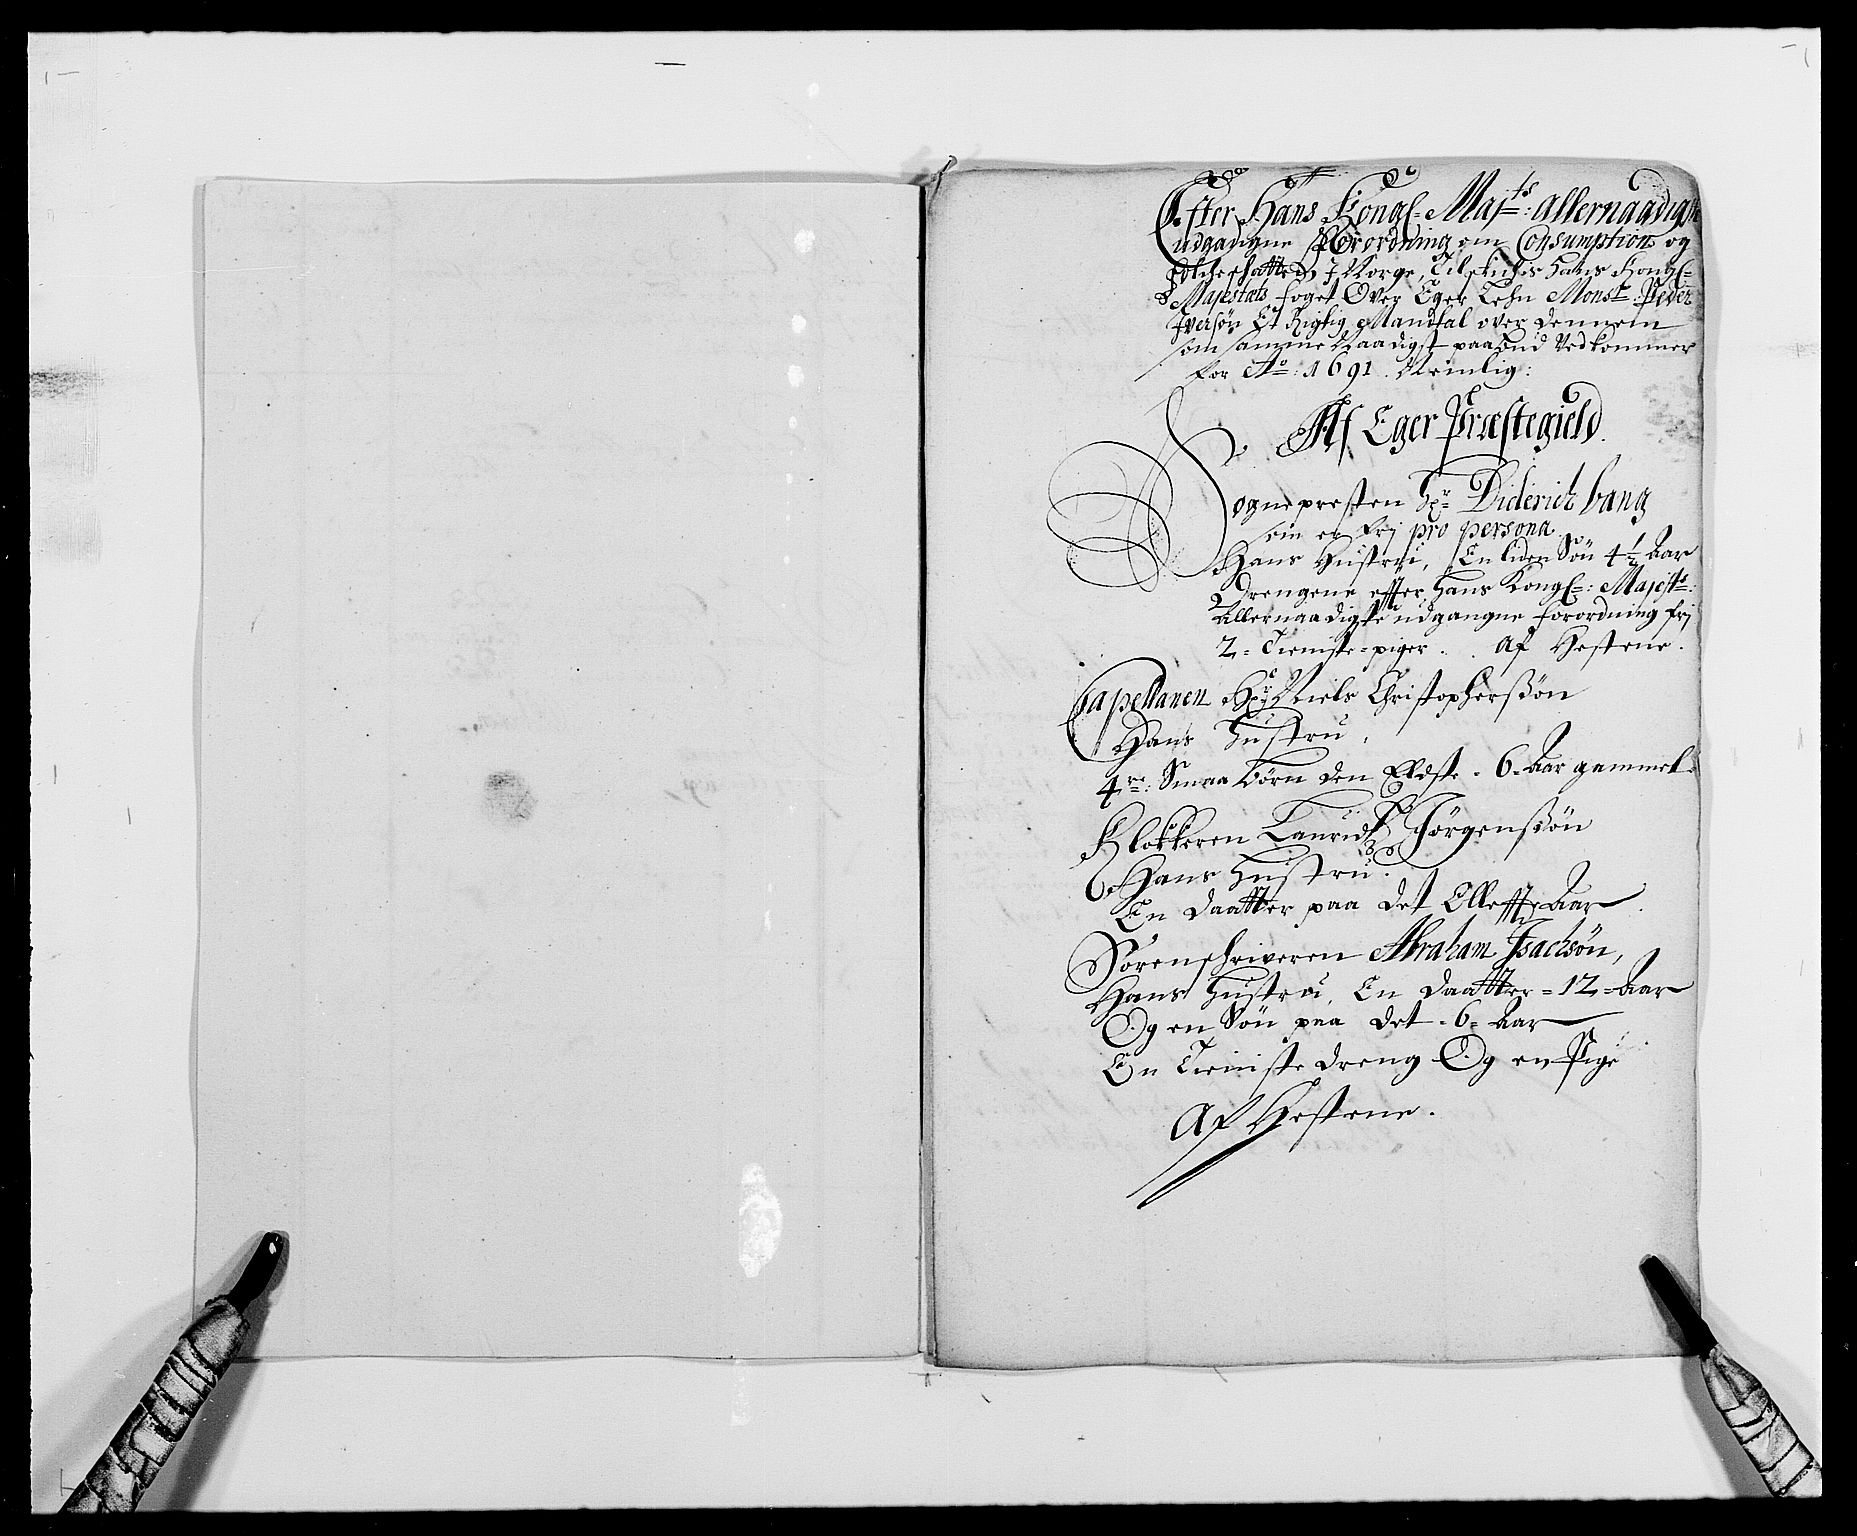 Efter Hans Kongl: Majts: allernaadigste
udgangne Forordning om Consumption og
Folcheskatten J Norge, Tilstilles Hans Kongl:
Majestæts foget Over Eger Lehn Monsr: Peder
Iversøn Et Rigtig Mandtal over dennem
som samme Naadigst paabud Vedkommer
for Ao: 1691. Nemlig:
Af Eger Præstegield.
Sognepresten Hr: Diderich bang
som er frj pro persona
Hans Hustru, En liden Søn 4½ Aar
2 Drengene efter Hans Kongl: Majestts:
Allernaadigste udgangne forordning frj
2 = Tieniste=piger. Af Hestene.
Capellanen Hr: Niels Christopherssøn
Hans Hustru,
4re: Smaa børn den Eldste = 6 = Aar gammel
Klokkeren Lauridtz Jörgenssön
Hans Hustru.
En daatter paa det Elleffte Aar.
Sorenschriveren Abraham Isachsøn,
Hans Hustru, En daatter = 12 = Aar
Og en Søn paa det = 6 = Aar
En Tieniste dreng Og en Pige
Af Hestene.